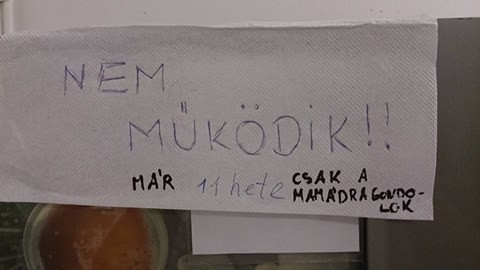 NEM
MŰKÖDİK!!
MÁR 11 hete CSAK A
MAMÁDRA GONDO-
LOK